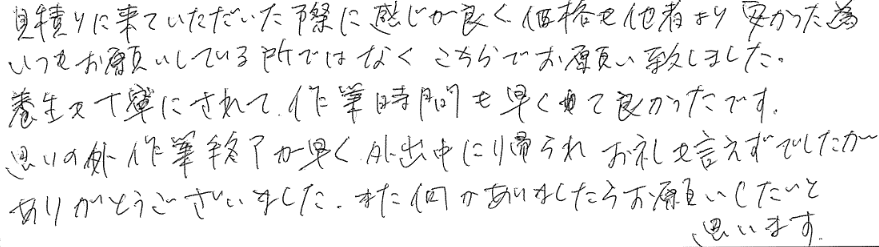 見積りに来ていただいた際に感じが良く価格も他者より安かった為
いつもお願いしている所ではなくこちらでお願い致しました。
養生も丁寧にされて、作業時間も早くて良かったです。
思いの外作業終了が早く外出中に帰られお礼も言えずでしたが
ありがとうございました。また何かありましたらお願いしたいと
思います。